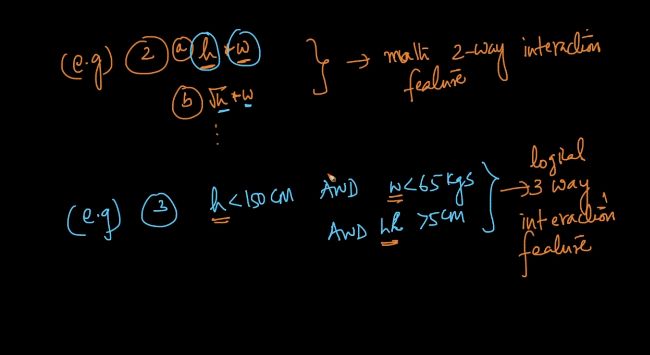 (e.g) 2 a h * w } → math 2-way interaction feature
b √h * w
⋮
(e.g) 3 h < 150 CM AND w < 65 kgs
AND hl > 5 cm } → logical 3 way interaction feature